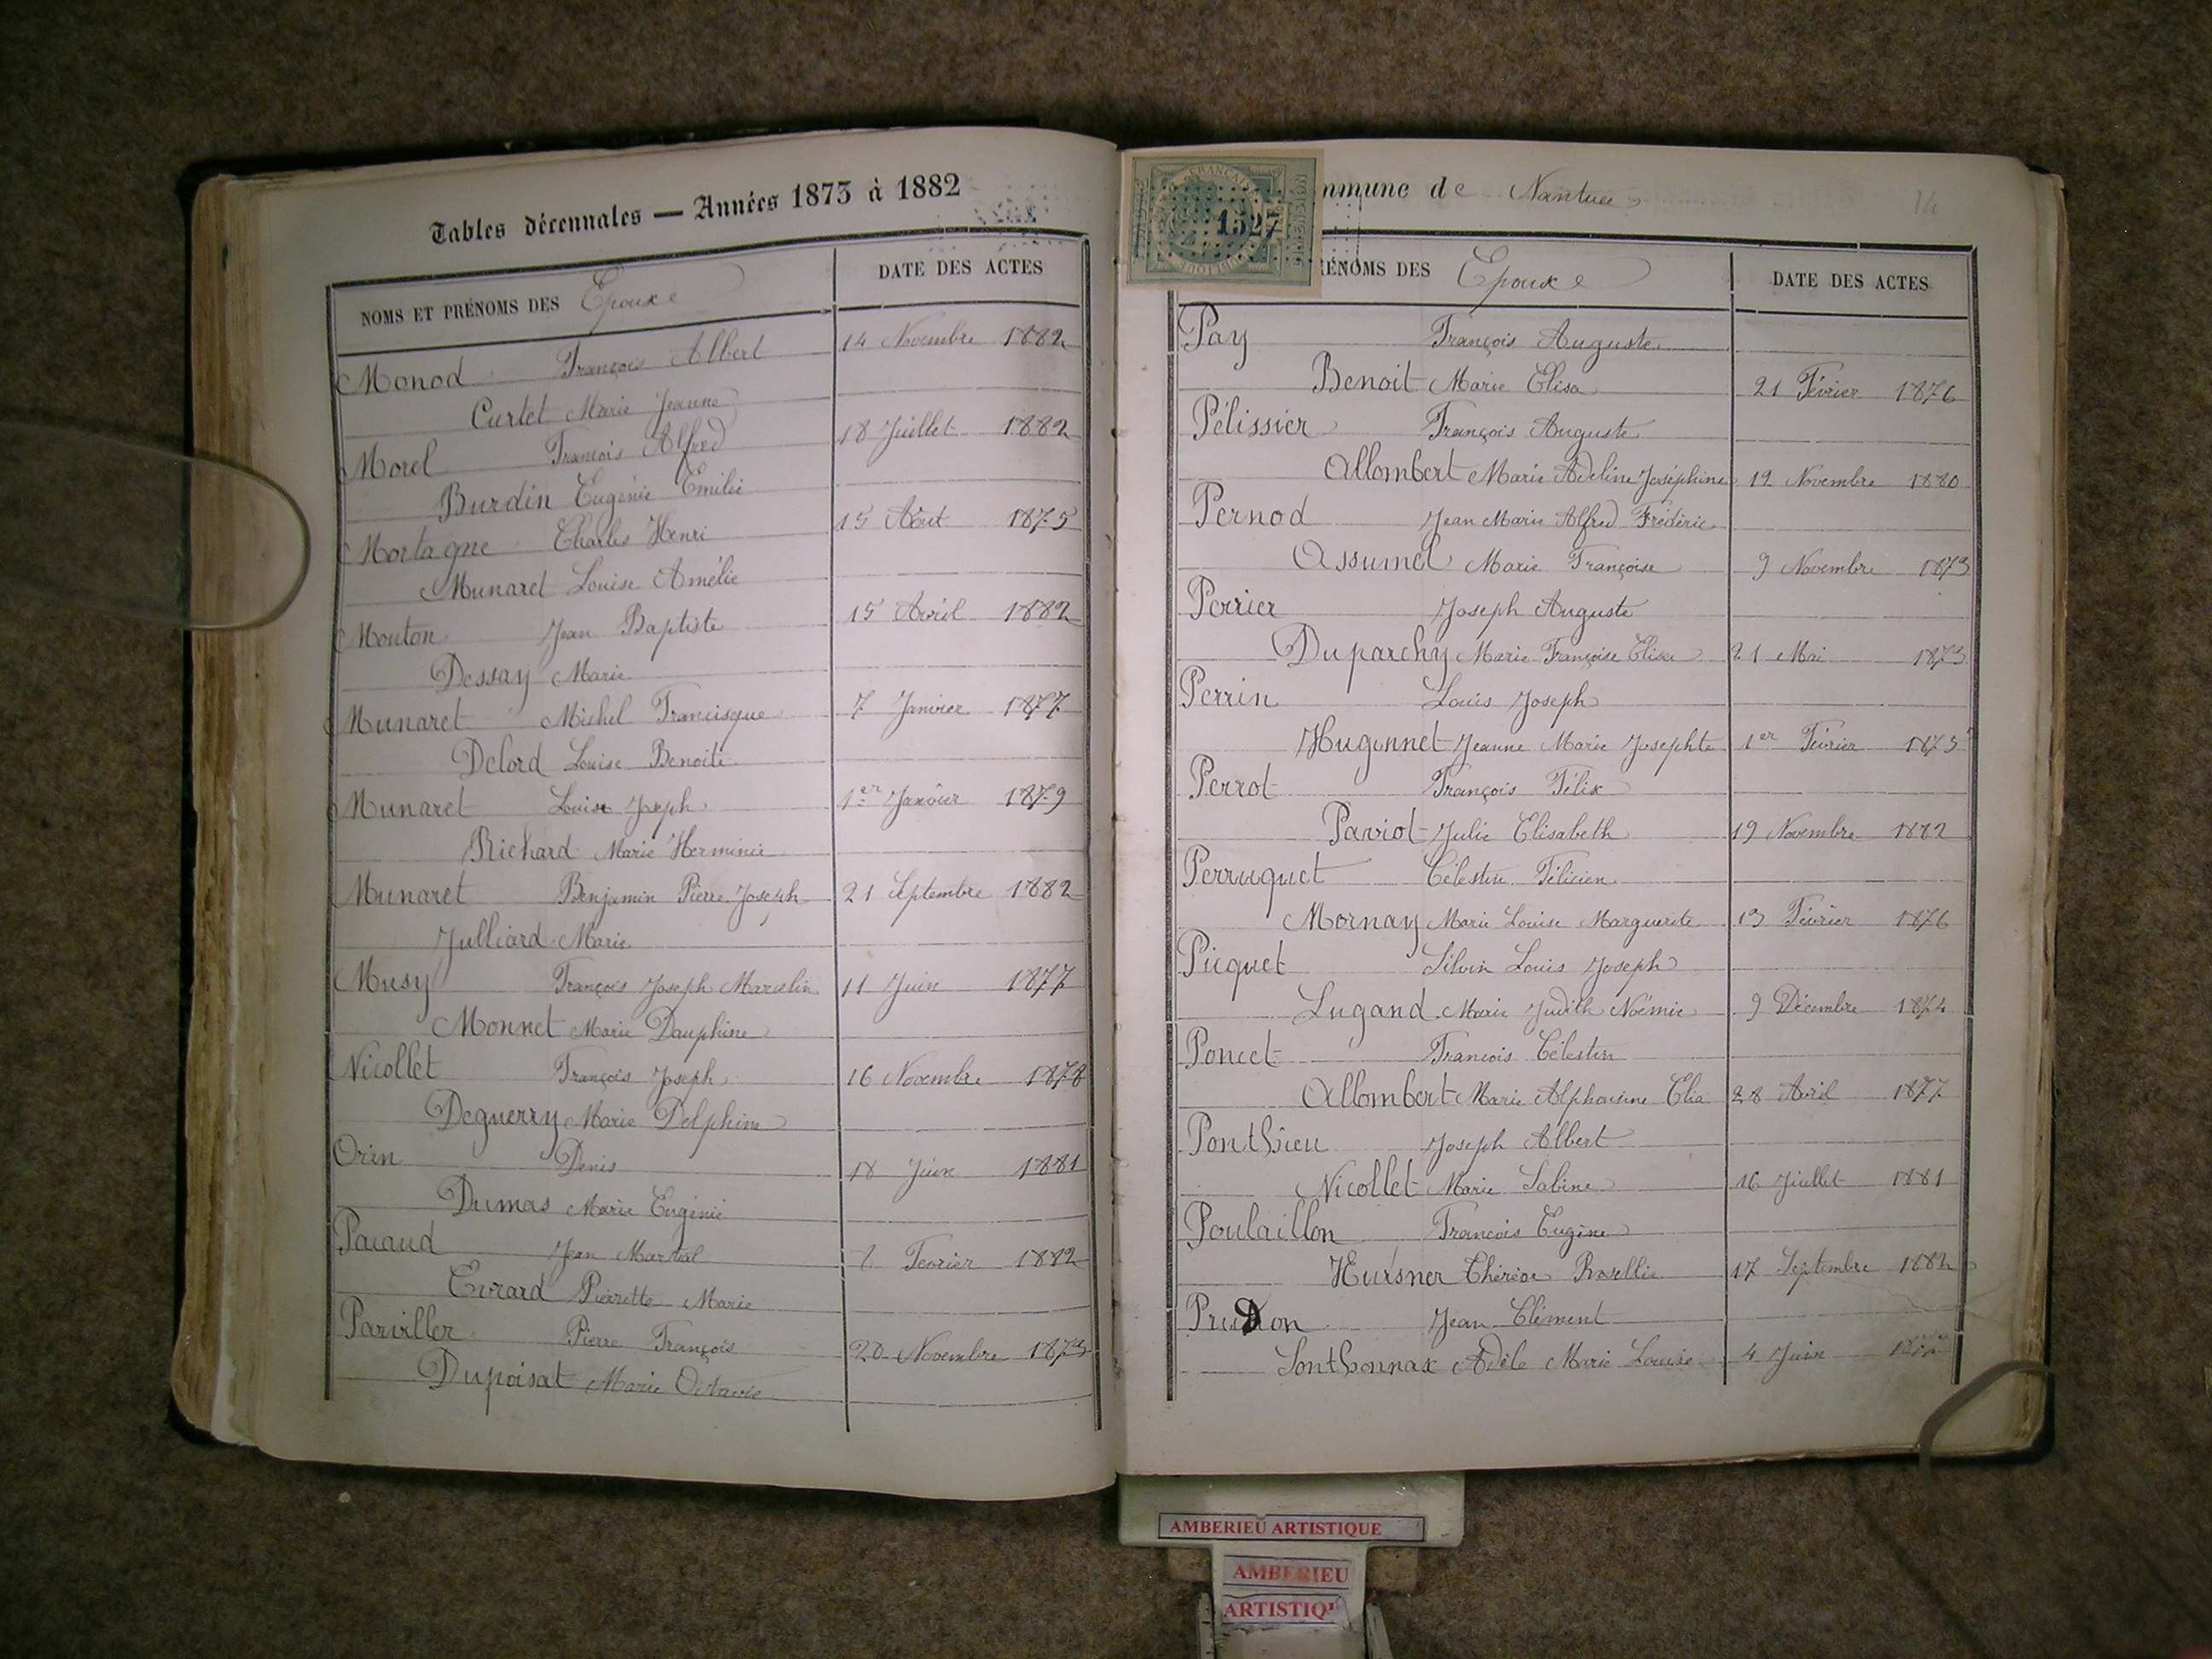 Tables décennales — Années 1873 à 1882
NOMS ET PRÉNOMS DES Epoux
DATE DES ACTES
Monod François Albert 14 Novembre 1882
Curtet Marie Jeanne
Morel François Alfred 18 Juillet 1882
Burdin Eugénie Emilie
Mortagne Charles Henri 15 Août 1875
Munaret Louise Amélie
Mouton Jean Baptiste 15 Avril 1882
Dessay Marie
Munaret Michel Francisque 7 Janvier 1877
Delord Louise Benoite
Munaret Louis Joseph 1er Janvier 1879
Richard Marie Herminie
Munaret Benjamin Pierre Joseph 21 Septembre 1882
Julliard Marie
Musy François Joseph Marcelin 11 Juin 1877
Monnet Marie Dauphine
Nicollet François Joseph 16 Novembre 1878
Deguerry Marie Delphine
Orin Denis 18 Juin 1881
Dumas Marie Eugénie
Pacaud Jean Martial 8 Fevrier 1882
Evrard Pierrette Marie
Pariviller Pierre François 20 Novembre 1873
Dupoisat Marie Octavie
1527
mmune de Nantua
14
RÉNOMS DES Epoux
DATE DES ACTES
Pay François Auguste
Benoit Marie Elisa 21 Février 1876
Pélissier François Auguste
Allombert Marie Adeline Joséphine 12 Novembre 1880
Pernod Jean Marie Alfred Frédéric
Assumel Marie Françoise 9 Novembre 1873
Perrier Joseph Auguste
Duparchy Marie Françoise Elisa 21 Mai 1873
Perrin Louis Joseph
Hugonnet Jeanne Marie Josephte 1er Février 1875
Perrot François Félix
Paviot Julie Elisabeth 19 Novembre 1882
Perruquet Célestin Félicien
Mornay Marie Louise Marguerite 13 Février 1876
Picquet Silvin Louis Joseph
Lugand Marie Judith Noémie 9 Décembre 1874
Poncet François Célestin
Allombert Marie Alphonsine Elia 28 Avril 1877
Ponthieu Joseph Albert
Nicollet Marie Sabine 16 Juillet 1881
Poulaillon François Eugène
Heursner Thérèse Rosellie 17 Septembre 1882
Prudon Jean Clément
Sonthonnax Adèle Marie Louise 4 Juin
AMBERIEU ARTISTIQUE
AMBERIEU
ARTISTIQ